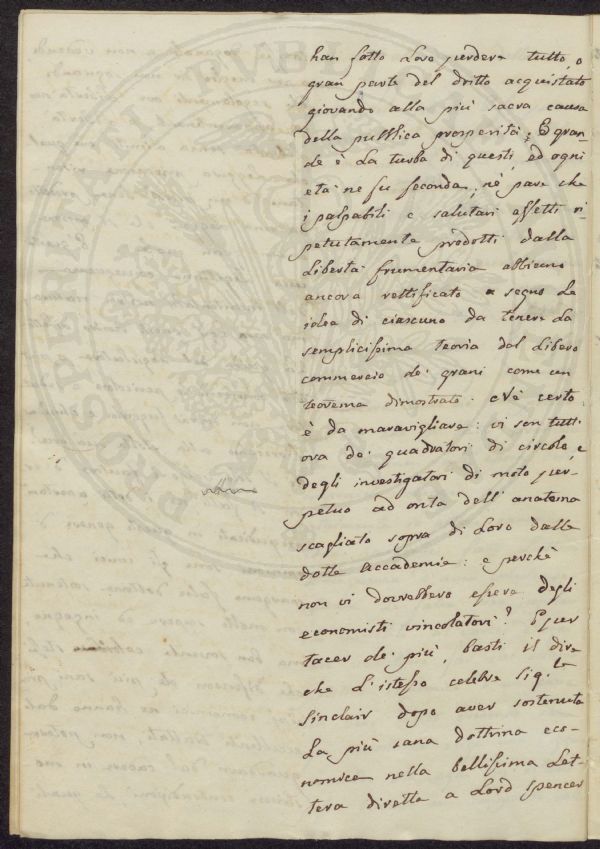 han fatto Loro perdere tutto, o
gran parte del dritto acquistato
giovando alla più sacra causa
della pubblica prosperità. E gran-
de è La turba di questi, ed ogni
età ne fu feconda; nè pare che
i palpabili e salutari effetti ri-
petutamente prodotti dalla
Libertà frumentaria abbiano
ancora rettificato a segno Le
idee di ciascuno da tenere La
semplicissima teoria del Libero
commercio de' grani come un
teorema dimostrato. Nè certo
è da maravigliare: vi son tutt'
ora de' quadratori di circolo, e
degli investigatori di moto per-
petuo ad onta dell'anatema
scagliato sopra di Loro dalle
dotte Accademie: e perchè
non vi dovrebbero essere degli
economisti vincolatori? E per
tacer de' più, basti il dire
che L'istesso celebre Sig.r
Sinclair dopo aver sostenuta
La più sana dottrina eco-
nomica nella bellissima Let-
tera diretta a Lord Spencer
PROSPERITATI PUBL